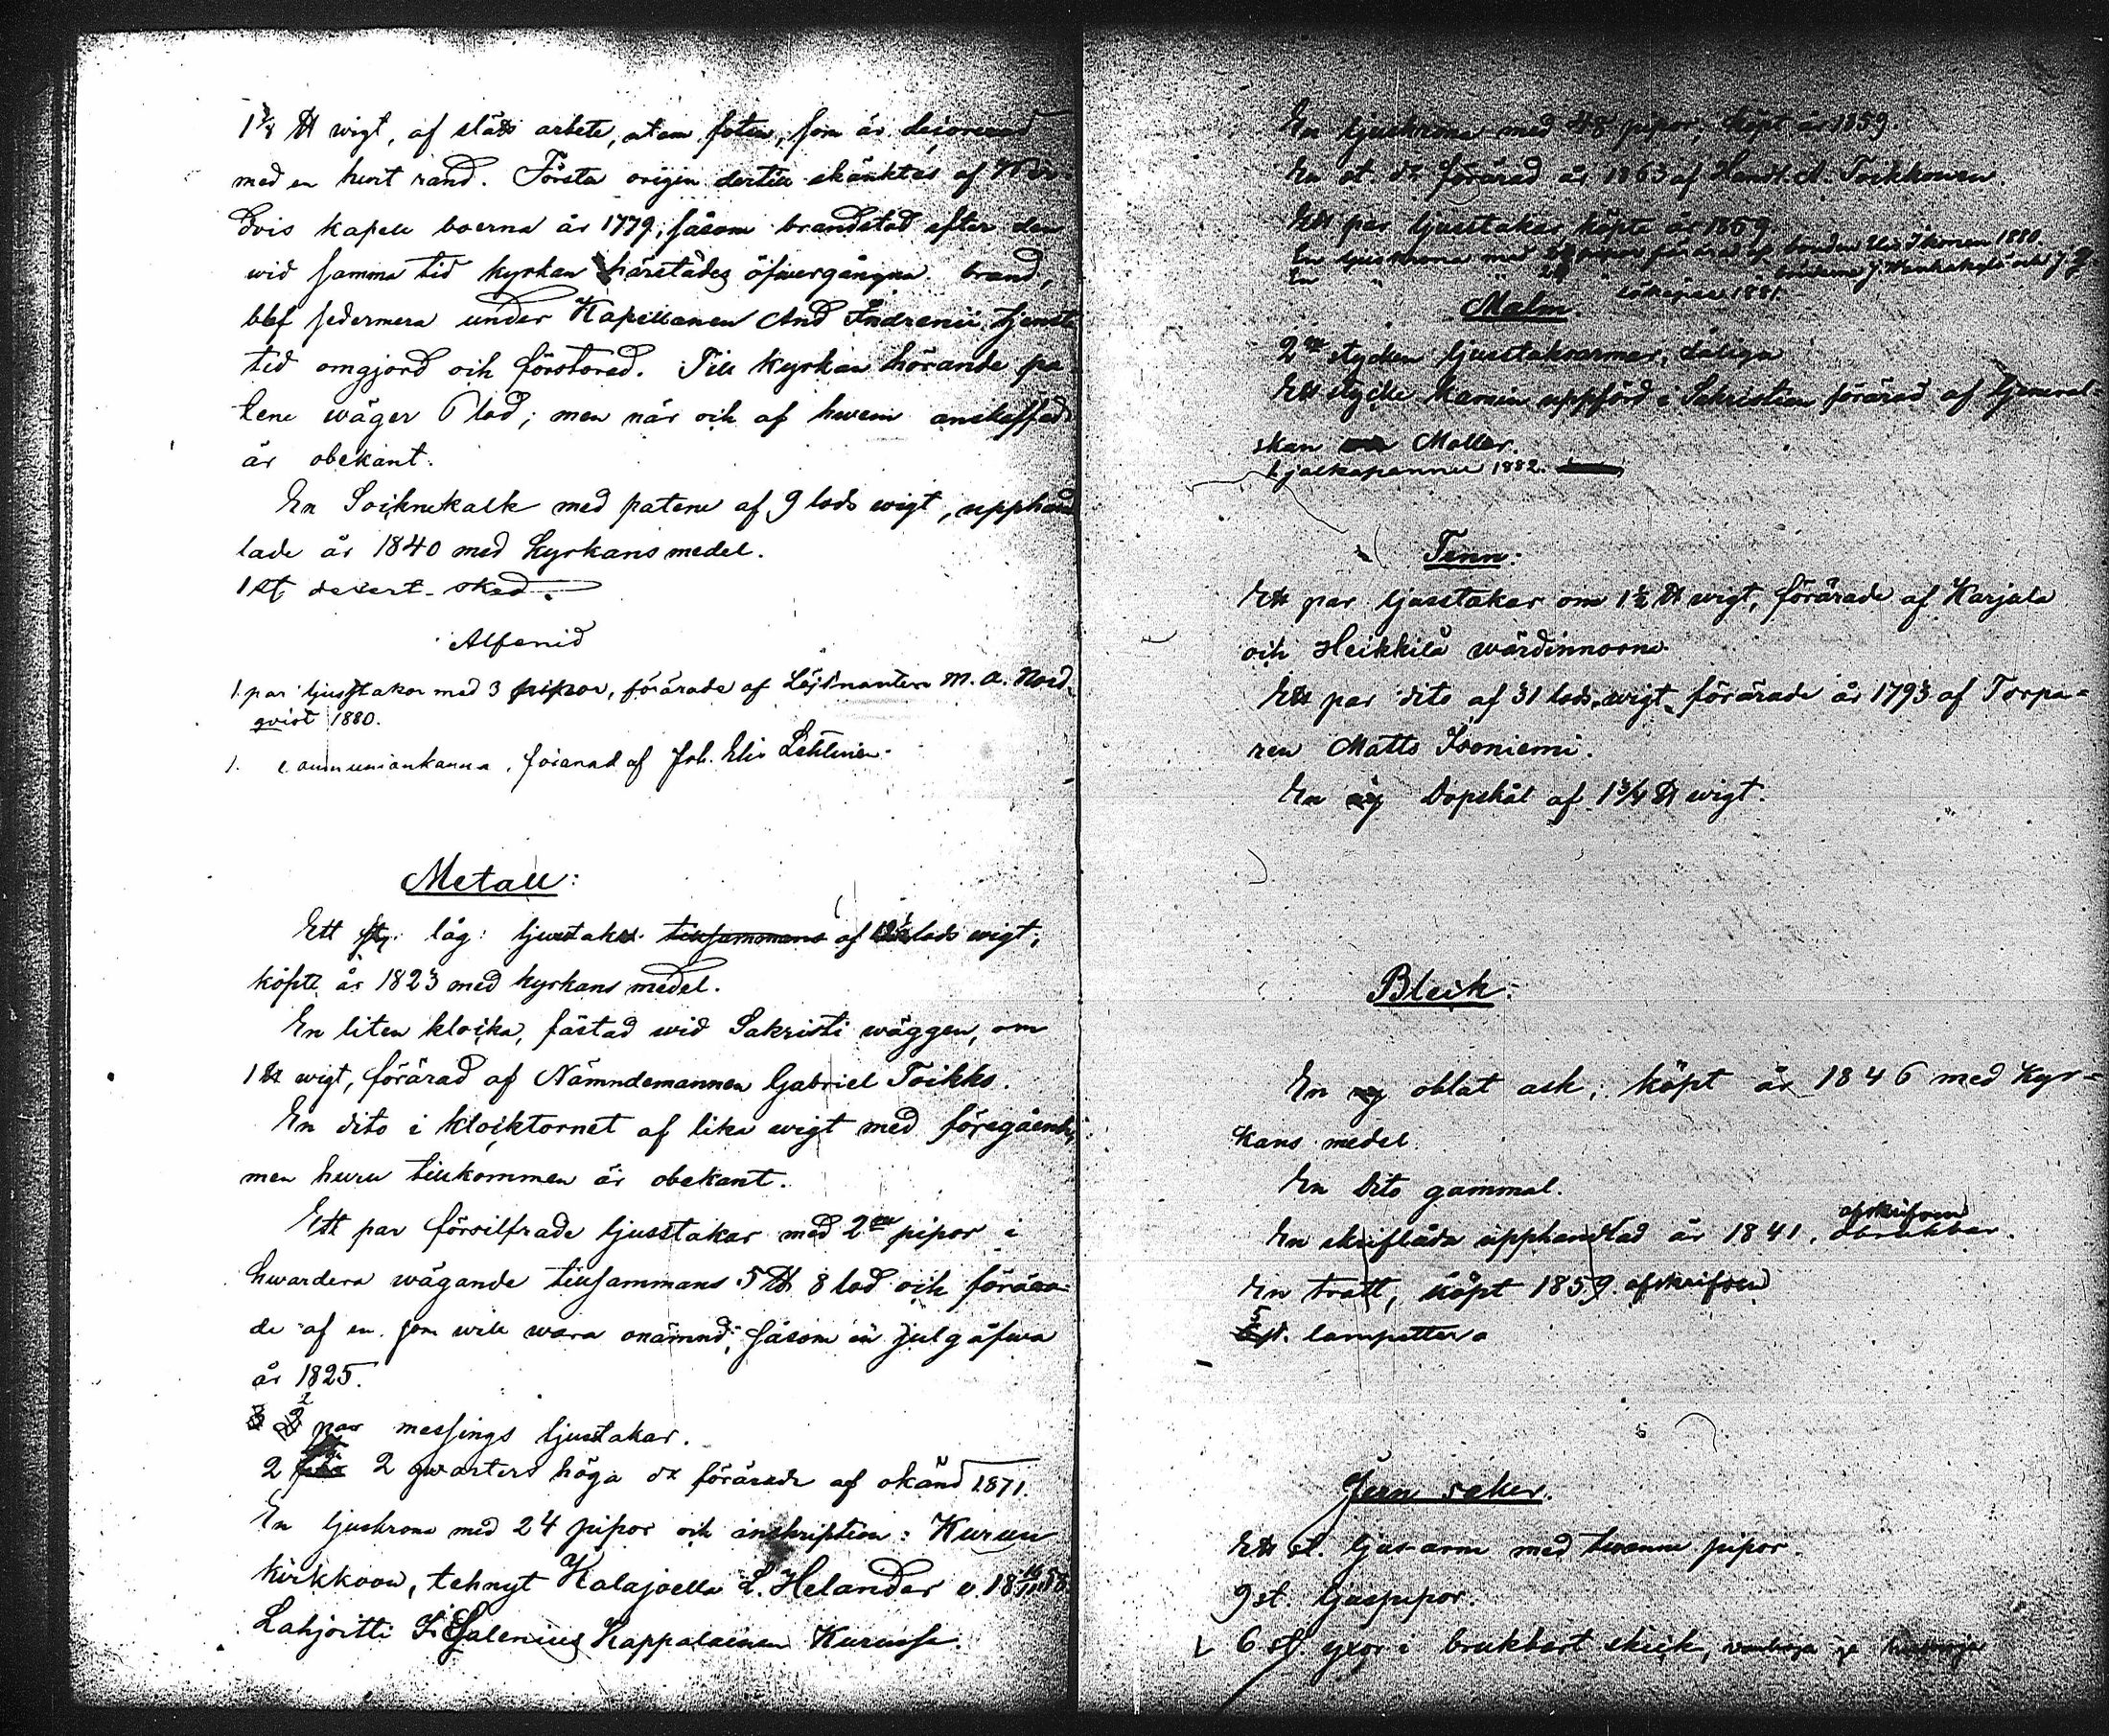 1 3/8 ℔ wigt, af slätt arbete, utom foten, som är decorerad
med en hvit rand. Första origin dertill skänktes af Wir-
dois kapell boerna år 1779, såsom brandstod efter den
wid samma tid kyrkan härstädes öfwergångna brand,
blef sedermera under Kapellanen And Indrenii tjenste
tid omgjord och förstorad. Till kyrkan hörande pa-
tene wäger 6 lod; men när och af hwem anskaffad
är obekant.
En Socknekalk med patene af 9 lods wigt, upphand
lade år 1840 med kyrkans medel.
1 st desert-sked.
Alfenid
1 par ljusstakar med 3 pipor, förärade af Löjtnanten M. A. Nord-
qvist 1880.
1. communionkanna, förärad af Joh. Elis Lehtinen.
Metall:
Ett st. låg: ljusstake tillsammans af lods wigt,
köpte år 1823 med kyrkans medel.
En liten klocka, fästad wid Sakristi wäggen, om
1 ℔ wigt, förärad af Nämndemannen Gabriel Toikko.
En dito i klocktornet af lika wigt med föregående,
men huru tillkommen är obekant.
Ett par försilfrade ljusstakar med 2ne pipor i
hwardera wägande tillsammans 5 ℔ 8 lod och förära-
de af en som will wara onämnd, såsom en julgåfwa
år 1825.
2 par messings ljusstakar.
2 2 qwarters höga do förärade af okänd 1871.
En ljuskrona med 24 pipor och inskription: Kurun
kirkkoon, tehnyt Kalajoella L. Helander v. 18
Lahjoitti Salenius Kappalainen Kurussa.
En ljuskrona med 48 pipor, köpt år 1859.
En st do förärad år 1863 af Handl. A. Toikkonen.
Ett par ljusstakar köpte år 1859
En ljuskrona med pipor förärad af bonden Elis Ikonen 1880.
En " " " 1881.
Malm.
2ne stycken ljusstaksarmar, dåliga
Ett stycke Kamin uppförd i Sakristian förärad af General-
skan Moller.
1 jalkapannu 1882.
Tenn:
Ett par ljusstakar om 1½ ℔ wigt, förärade af Karjula
och Heikkilä wärdinnorna
Ett par dito af 31 lods wigt förärade år 1793 af Torpa-
ren Matts Isoniemi.
En ny Dopskål af 1 3/4 ℔ wigt.
Bleck:
En ny oblat ask; köpt år 1846 med Kyr-
kans medel.
En Dito gammal.
afskrifven
En skriflåda upphandlad år 1841. obrukbar.
En tratt, köpt 1859. afskrifven
5 st. lampetter
Jern saker.
Ett st. ljus-arm med twenne pipor.
9 st. ljuspipor.
6 st. yxor i brukbart skick,